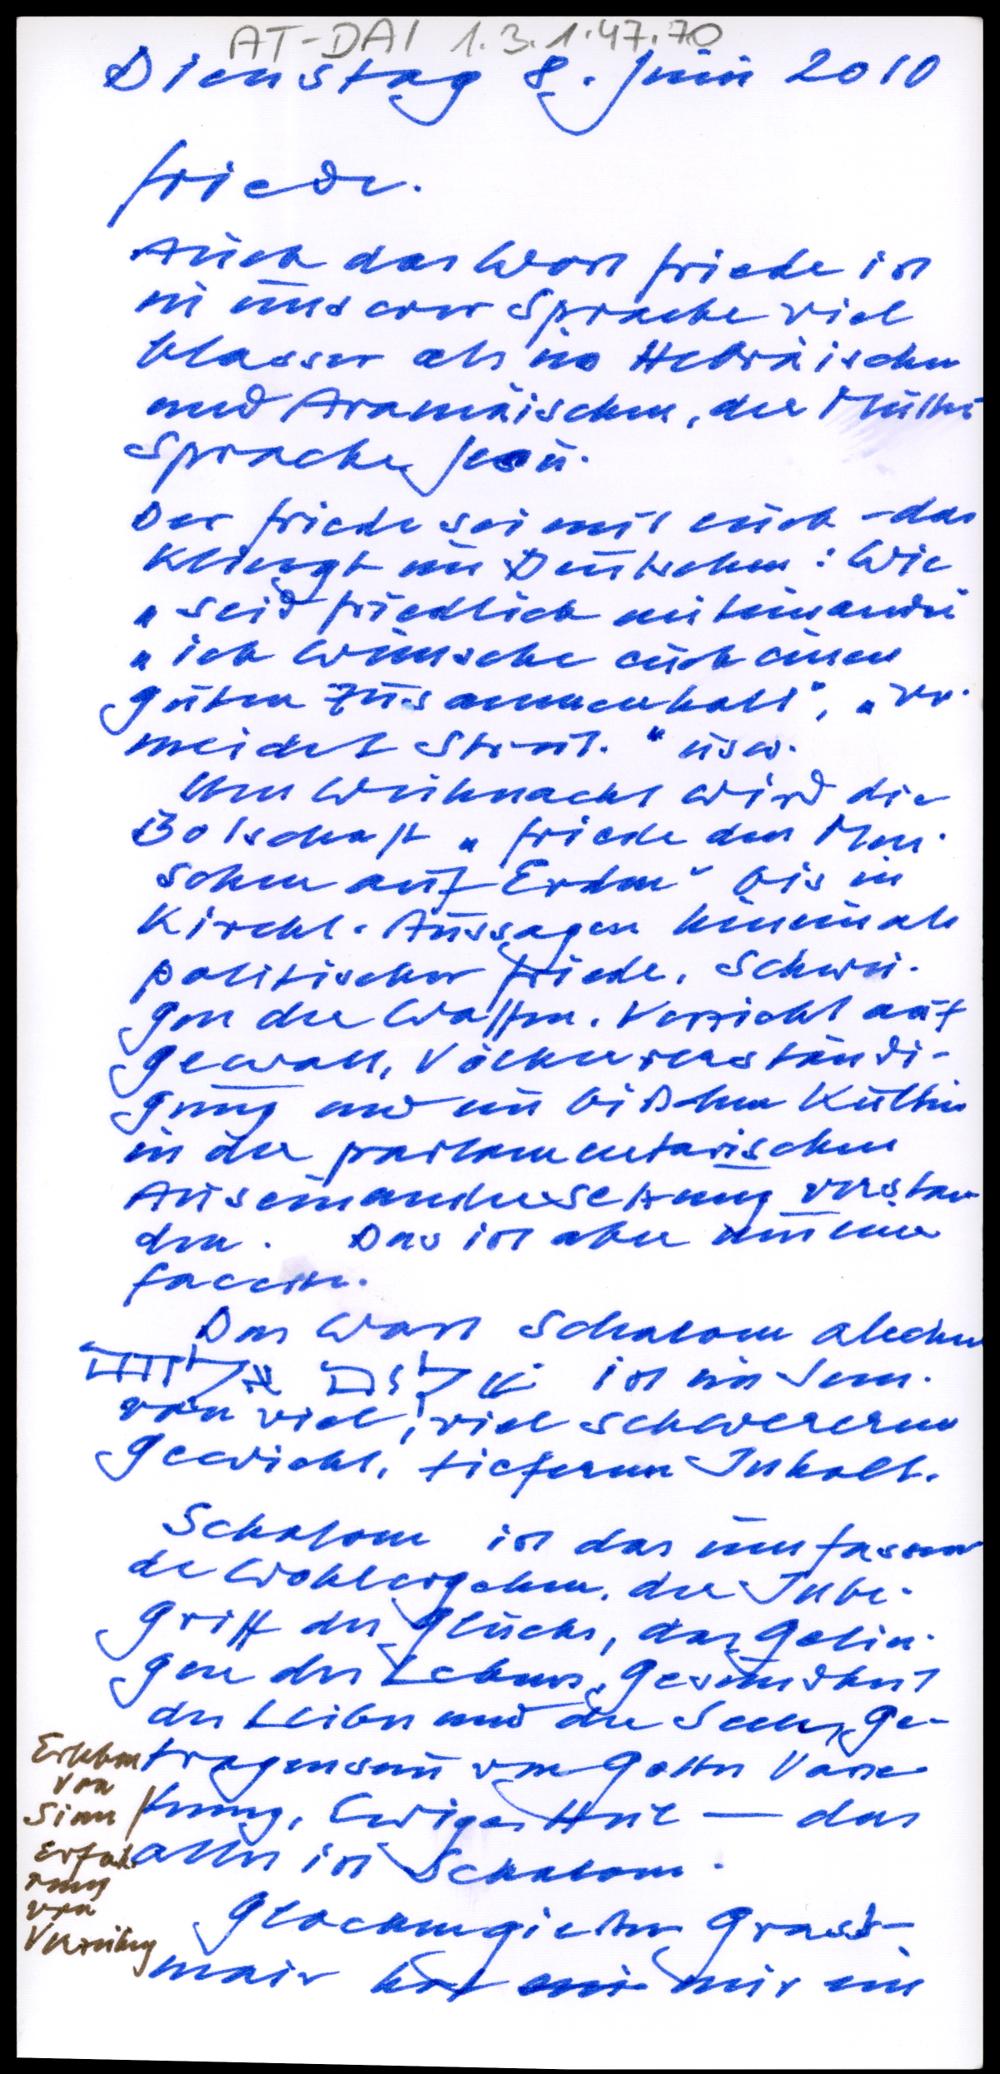 AT-DAI 1.3.1.47.70
Dienstag 8. Juni 2010
Friede.
Auch das Wort Friede ist
in unserer Sprache viel
blasser als im Hebräischen
und Aramäischen, der Mutter
Sprache Jesu.
Der Friede sei mit euch - das
klingt im Deutschen: Wie
„seid friedlich miteinander
„ich wünsche euch einen
guten Zusammenhalt", „ver-
meidet Streit." usw.
Um Weihnacht wird die
Botschaft „Friede den Men-
schen auf Erden" bis in
Kirchl. Aussagen hinein als
politischer Friede, Schwei-
gen der Waffen, Verzicht auf
Gewalt, Völkerverständi-
gung und ein bißchen Kultur
in der parlamentarischen
Auseinandersetzung verstan
den. Das ist aber nur eine
Facette.
Das Wort Schalom alechem
ist im Sem.
von viel, viel schwererem
Gewicht, tieferem Inhalt.
Schalom ist das umfassen
de Wohlergehen, der Inbe-
griff des Glücks, das Gelin-
gen des Lebens, Gesundheit
des Leibes und der Seele, Ge-
tragensein von Gottes Vorse-
hung, Ewiges Heil — das
alles ist Schalom.
Erleben
von
Sinn
Erfah
rung
von
Verzeihung
Glockengießer Grass-
mair hat mir ein